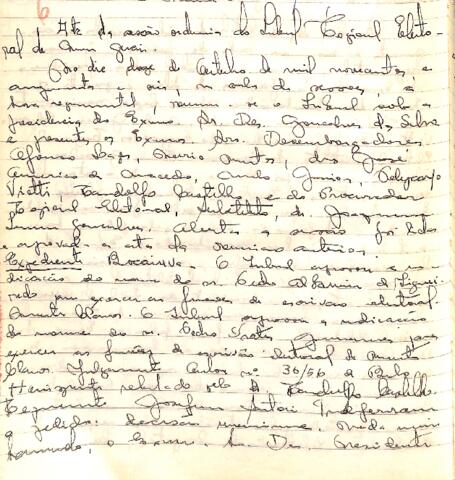 6
Ata da sessão ordinária do Tribunal Regional Eleito-
ral de Minas Gerais.
Aos dias doze de outubro de mil novecentos e
cinquenta e seis, na sala de sessões, à
hora regimental, reuniu-se o Tribunal sob a
presidência do Exmo. Sr. Des. Gonçalves da Silva
e presentes os Exmos. Srs. Desembargadores
Afonso Lages, Onofre Mendes, drs. José
Américo de Macedo, Cunha Junior,
Viotti, e do Procurador
Regional Eleitoral, substituto, dr. Joaquim
Ferreira Gonçalves. Aberta a sessão foi lida
e aprovada a ata da reunião anterior.
Expediente O Tribunal aprovou a in-
dicação do nome do sr. Pedro de Figuei-
redo para exercer as funções de escrivão eleitoral
Montes Claros. O Tribunal aprovou a indicação
do nome do sr. Pedro Prates Guimarães para
exercer as funções de escrivão eleitoral de Monte
Claros. Julgamento Autos nº 36/56 de Belo
Horizonte relatado pelo dr.
Requerente Joaquim Antonio Indeferiram
o pedido: decisão unânime. Nada mais
havendo, o Exmo. Sr. Des. Presidente